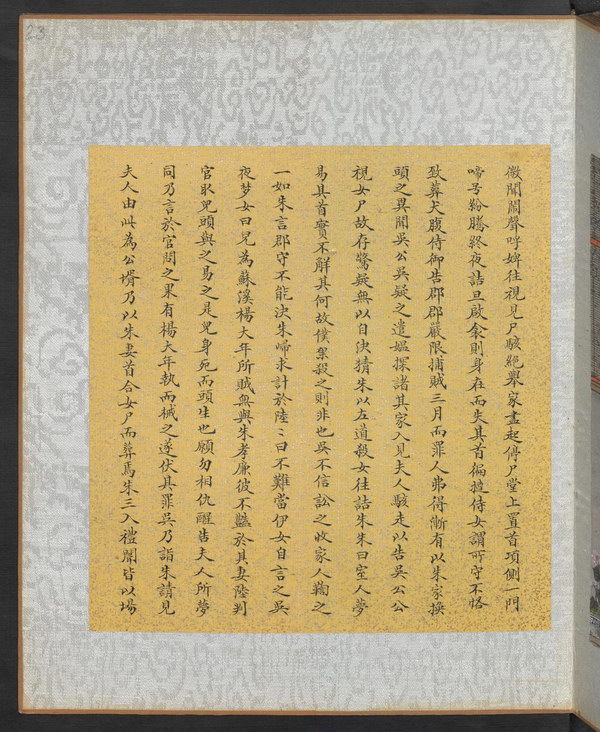 23
微聞鬧聲呼婢往視見尸駭絕舉家盡起停尸堂上置首項側一門
啼号紛騰終夜詰旦啟衾則身在而失其首徧撻侍女謂所守不恪
致葬犬腹侍御告郡郡嚴限捕賊三月而罪人弗得漸有以朱家換
頭之異聞吳公吳疑之遣媼探諸其家入見夫人駭走以告吳公公
視女尸故存驚疑無以自決猜朱以左道殺女往詰朱朱曰室人夢
易其首實不解其何故僕殺之則非也吳不信訟之收家人鞫之
一如朱言郡守不能決朱歸求計於陸〻曰不難當伊女自言之吳
夜梦女曰兒為蘇溪楊大年所賊無與朱孝廉彼不豔於其妻陸判
官取兒頭與之易之是兒身死而頭生也願勿相仇醒告夫人所夢
同乃言於官問之果有楊大年執而械之遂伏其罪吳乃詣朱請見
夫人由此為公壻乃以朱妻首合女尸而葬焉朱三入禮闈皆以場